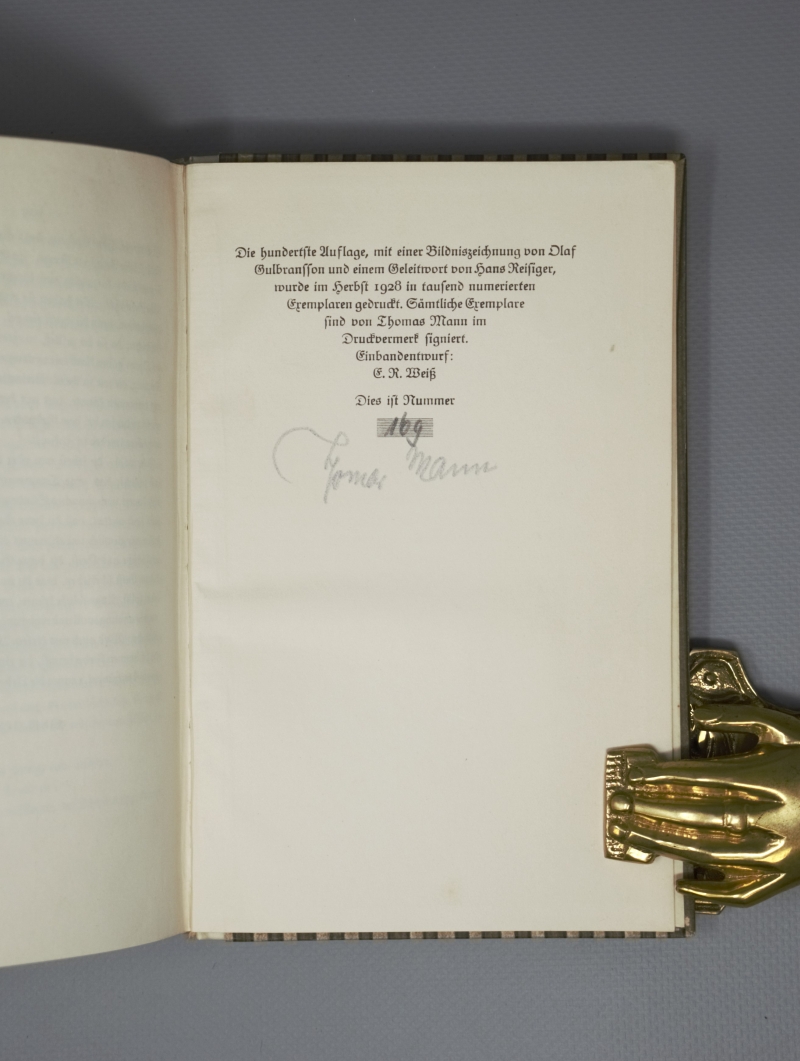 Die hundertste Auflage, mit einer Bildniszeichnung von Olaf
Gulbransson und einem Geleitwort von Hans Reisiger,
wurde im Herbst 1928 in tausend numerierten
Exemplaren gedruckt. Sämtliche Exemplare
sind von Thomas Mann im
Druckvermerk signiert.
Einbandentwurf:
E. R. Weiß
Dies ist Nummer
169
Thomas Mann